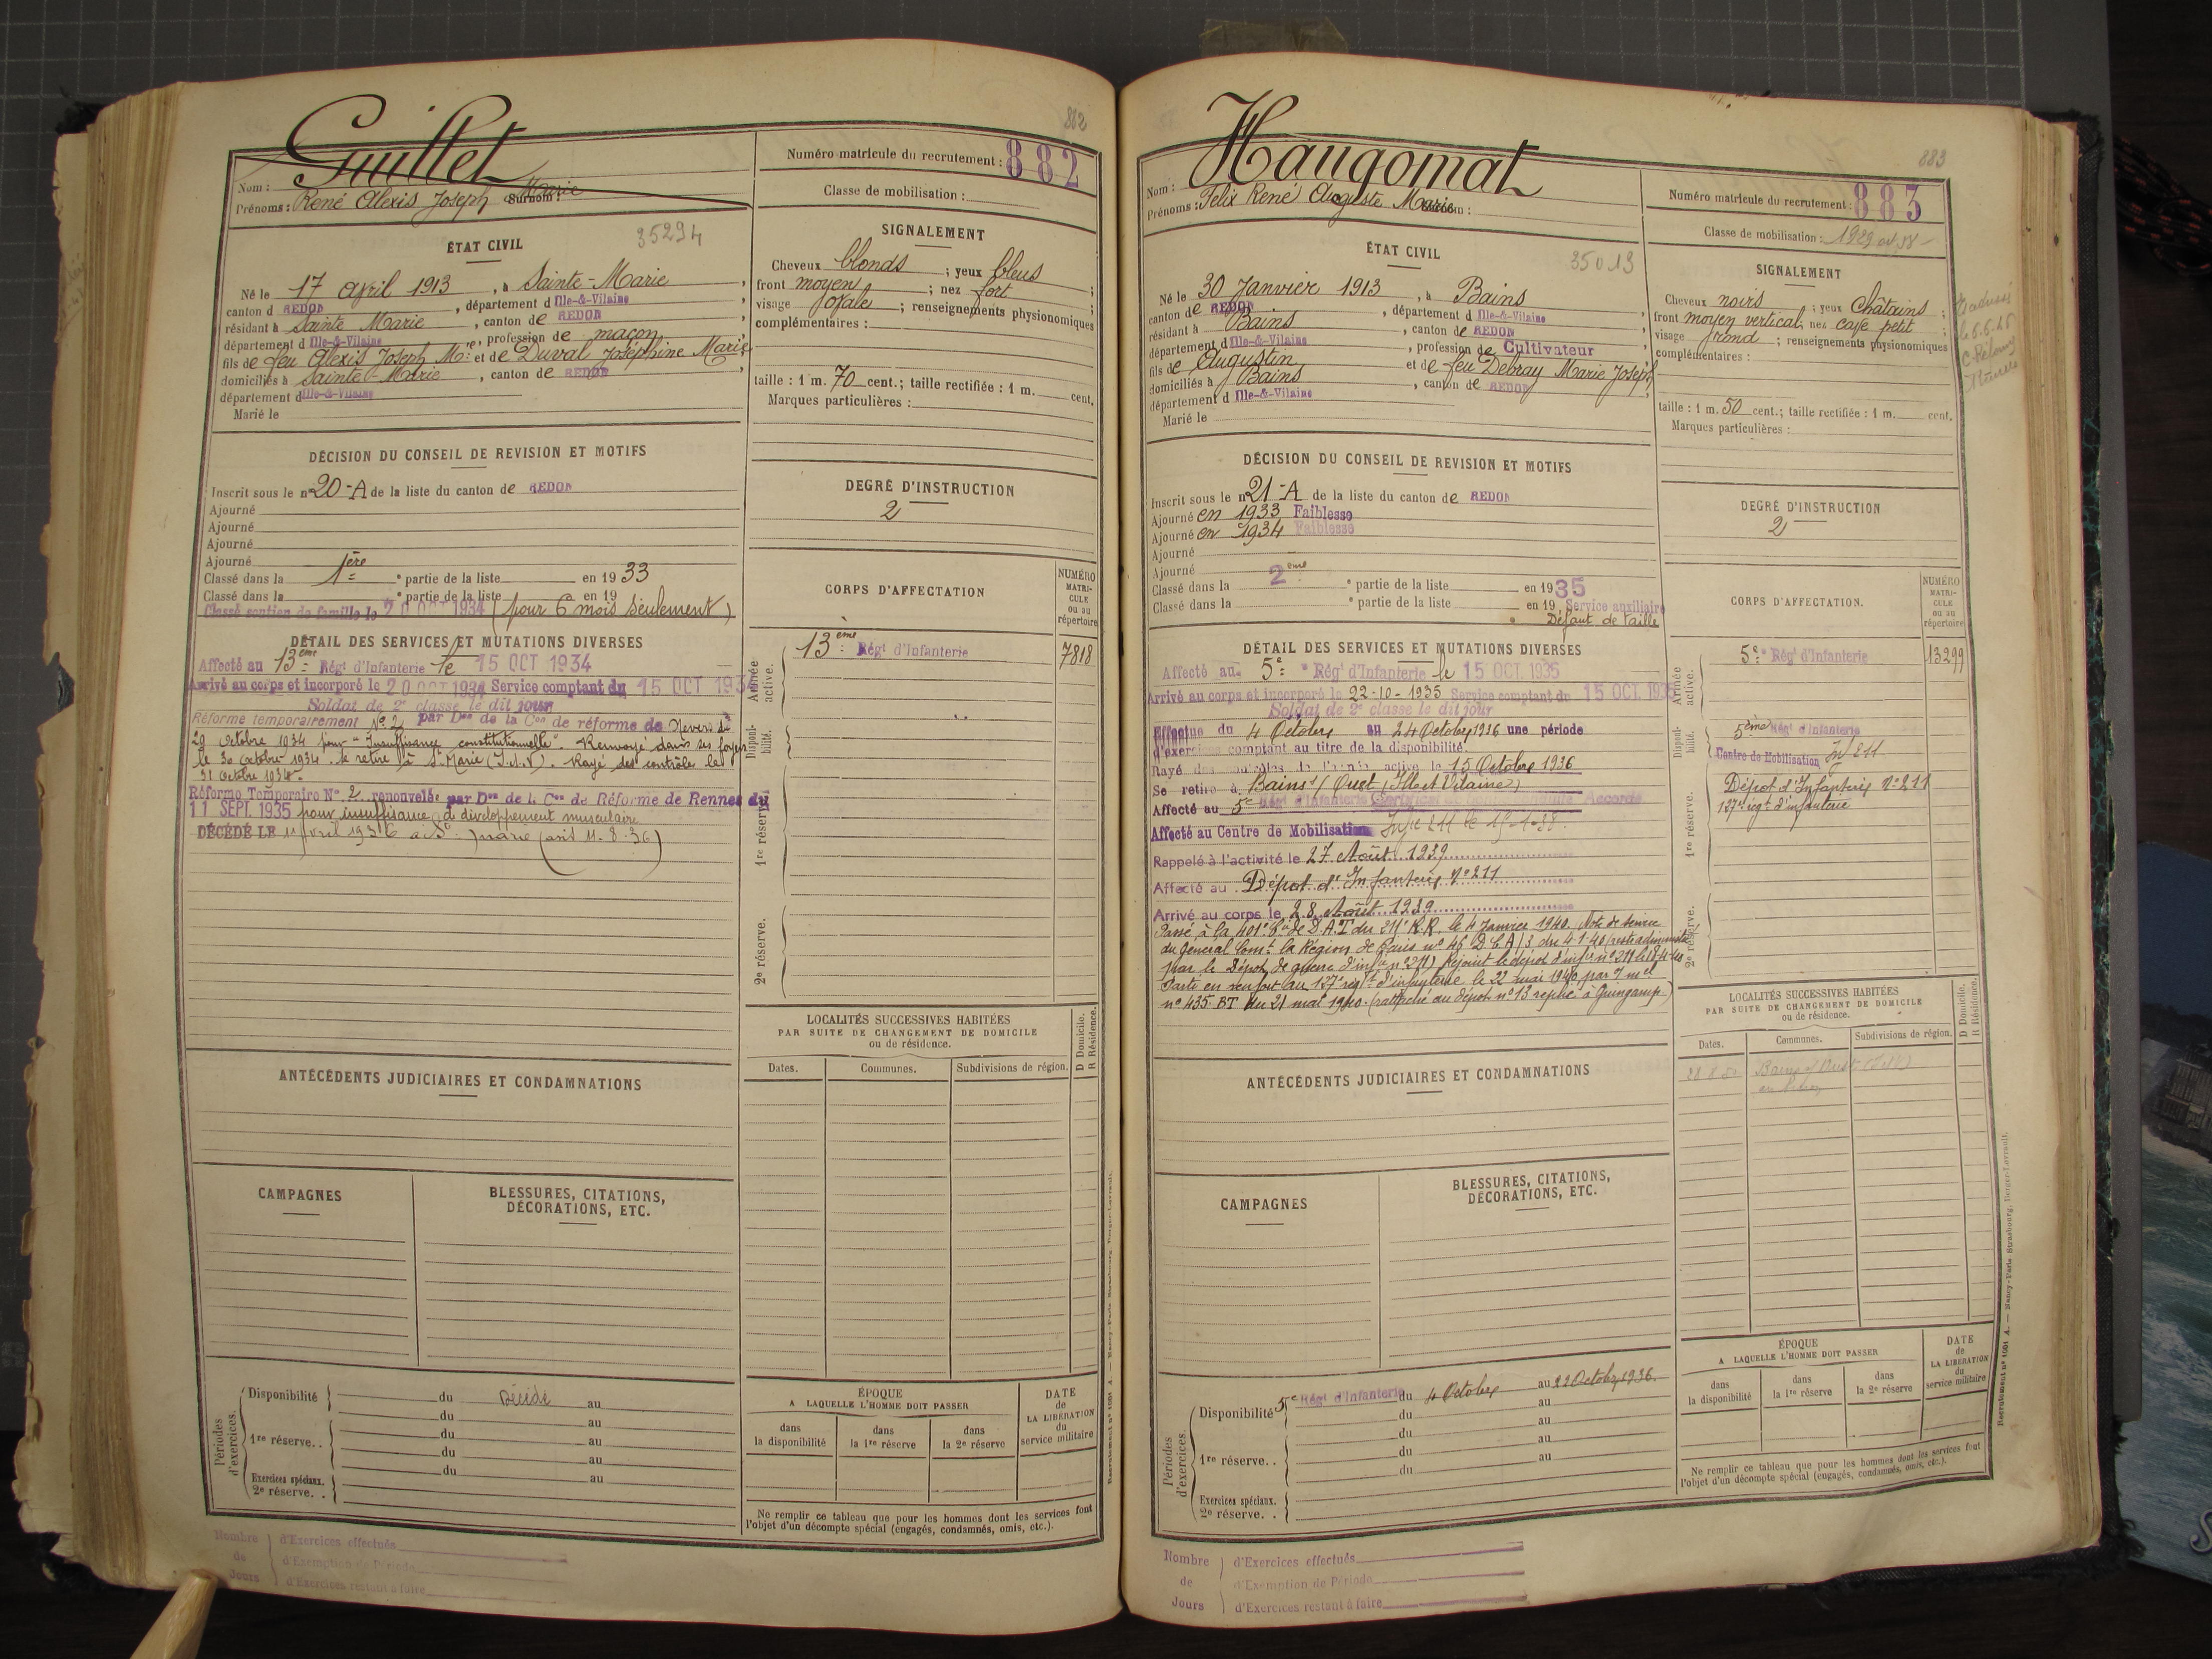 882
Guillet
Nom :
Prénoms : René Alexis Joseph Marie Surnom :
Numéro matricule du recrutement : 882
Classe de mobilisation :
ÉTAT CIVIL
35294
Né le 17 avril 1913, à Sainte-Marie,
canton d REDON, département d Ille-&-Vilaine
résidant à Sainte Marie, canton de REDON,
département d Ille-&-Vilaine, profession de maçon,
fils de feu Alexis Joseph Mie et de Duval Joséphine Marie
domiciliés à Sainte-Marie, canton de REDON,
département d Ille-&-Vilaine
Marié le
SIGNALEMENT
Cheveux blonds ; yeux bleus ;
front moyen ; nez fort ;
visage ovale ; renseignements physionomiques
complémentaires :
taille : 1 m. 70 cent. ; taille rectifiée : 1 m. cent.
Marques particulières :
DÉCISION DU CONSEIL DE REVISION ET MOTIFS
Inscrit sous le n° 20-A de la liste du canton de REDON
Ajourné
Ajourné
Ajourné
Ajourné
Classé dans la 1ère partie de la liste en 19 33
Classé dans la ° partie de la liste en 19
Classé soutien de famille le 20 OCT 1934 (pour 6 mois seulement)
DEGRÉ D'INSTRUCTION
2
DÉTAIL DES SERVICES ET MUTATIONS DIVERSES
Affecté au 13ème Régt d'Infanterie le 15 OCT 1934
Arrivé au corps et incorporé le 20 OCT 1934 Service comptant du 15 OCT 193
Soldat de 2e classe le dit jour
Réformé temporairement No 2 par Don de la Con de réforme de Nevers du
29 octobre 1934 pour "Insuffisance constitutionnelle". Renvoyé dans ses foyers
le 30 octobre 1934. Se retire à Ste Marie (I. et V.). Rayé des contrôle le
31 Octobre 1934.
Réforme Temporaire No 2 renouvelée par Don de la Con de Réforme de Rennes du
11 SEPT. 1935 pour insuffisance de développement musculaire
DÉCÉDÉ LE 11 avril 1936 à Ste Marie (avis 11.8.36)
CORPS D'AFFECTATION
NUMÉRO MATRICULE ou au répertoire
Armée active.
13ème Régt d'Infanterie
7818
Disponibilité.
1re réserve.
2e réserve.
LOCALITÉS SUCCESSIVES HABITÉES
PAR SUITE DE CHANGEMENT DE DOMICILE
ou de résidence.
D Domicile.
R Résidence.
Dates. Communes. Subdivisions de région.
ANTÉCÉDENTS JUDICIAIRES ET CONDAMNATIONS
CAMPAGNES
BLESSURES, CITATIONS,
DÉCORATIONS, ETC.
Périodes d'exercices.
Disponibilité du Décédé au
du au
1re réserve.. du au
du au
Exercices spéciaux. du au
2e réserve. .
ÉPOQUE
A LAQUELLE L'HOMME DOIT PASSER
dans la disponibilité
dans la 1re réserve
dans la 2e réserve
DATE de LA LIBÉRATION du service militaire
Ne remplir ce tableau que pour les hommes dont les services font
l'objet d'un décompte spécial (engagés, condamnés, omis, etc.).
Nombre de Jours
d'Exercices effectués
d'Exemption de Période
d'Exercices restant à faire
883
Haugomat
Nom :
Prénoms : Félix René Auguste Marie Surnom :
Numéro matricule du recrutement : 883
Classe de mobilisation : 1929
ÉTAT CIVIL
35013
Né le 30 Janvier 1913, à Bains
canton de REDON, département d Ille-&-Vilaine
résidant à Bains, canton de REDON
département d Ille-&-Vilaine, profession de Cultivateur,
fils de Augustin et de feu Debray Marie Joseph
domiciliés à Bains, canton de REDON,
département d Ille-&-Vilaine
Marié le
SIGNALEMENT
Cheveux noirs ; yeux Châtains ;
front moyen vertical ; nez cave petit ;
visage rond ; renseignements physionomiques
complémentaires :
taille : 1 m. 50 cent. ; taille rectifiée : 1 m. cent.
Marques particulières :
DÉCISION DU CONSEIL DE REVISION ET MOTIFS
Inscrit sous le n° 21-A de la liste du canton de REDON
Ajourné en 1933 Faiblesse
Ajourné en 1934 Faiblesse
Ajourné
Ajourné
Classé dans la 2ème partie de la liste en 19 35
Classé dans la ° partie de la liste en 19 Service auxiliaire
Défaut de taille
DEGRÉ D'INSTRUCTION
2
DÉTAIL DES SERVICES ET MUTATIONS DIVERSES
Affecté au 5e Régt d'Infanterie le 15 OCT 1935
Arrivé au corps et incorporé le 22-10-1935 Service comptant du 15 OCT. 193
Soldat de 2e classe le dit jour
Effectue du 4 Octobre au 24 Octobre 1936 une période
d'exercices comptant au titre de la disponibilité.
Rayé des contrôles de l'armée active le 15 Octobre 1936
Se retire à Bains s/ Oust (Ille et Vilaine)
Affecté au 5e Régt d'Infanterie Certificat de Accordé
Affecté au Centre de Mobilisation Infie 211 le
Rappelé à l'activité le 27 Août 1939
Affecté au Dépôt d'Infanterie No 211
Arrivé au corps le 28 Août 1939
Passé à la 401e de D.A.T du 211e R.R. le 4 Janvier 1940. Note de service
du Général Comt la Région de Paris no 46 D.C.A/3 du 4-1-40 (reste administré
par le Dépôt de guerre d'infie no 211) Rejoint le dépôt d'infie no 211 le
Parti en renfort au 127e régt d'infanterie le 22 mai 1940 par
no 435 BT du 21 mai 1940. (rattaché au dépôt no 13 replié à Guingamp)
CORPS D'AFFECTATION.
NUMÉRO MATRICULE ou au répertoire
Armée active.
5e Régt d'Infanterie
13299
Disponibilité.
5ème Régt d'Infanterie
Centre de Mobilisation Inf 211
1re réserve.
Dépôt d'Infanterie No 211
127e régt d'infanterie
2e réserve.
LOCALITÉS SUCCESSIVES HABITÉES
PAR SUITE DE CHANGEMENT DE DOMICILE
ou de résidence.
D Domicile.
R Résidence.
Dates. Communes. Subdivisions de région.
Bains s/ Oust
ANTÉCÉDENTS JUDICIAIRES ET CONDAMNATIONS
CAMPAGNES
BLESSURES, CITATIONS,
DÉCORATIONS, ETC.
Périodes d'exercices.
Disponibilité 5e Régt d'Infanterie du 4 Octobre au 22 Octobre 1936.
du au
du au
1re réserve.. du au
du au
Exercices spéciaux.
2e réserve. .
ÉPOQUE
A LAQUELLE L'HOMME DOIT PASSER
dans la disponibilité
dans la 1re réserve
dans la 2e réserve
DATE de LA LIBÉRATION du service militaire
Ne remplir ce tableau que pour les hommes dont les services font
l'objet d'un décompte spécial (engagés, condamnés, omis, etc.).
Recrutement no 1661 A. — Nancy-Paris-Strasbourg, Berger-Levrault.
Nombre de Jours
d'Exercices effectués
d'Exemption de Période
d'Exercices restant à faire